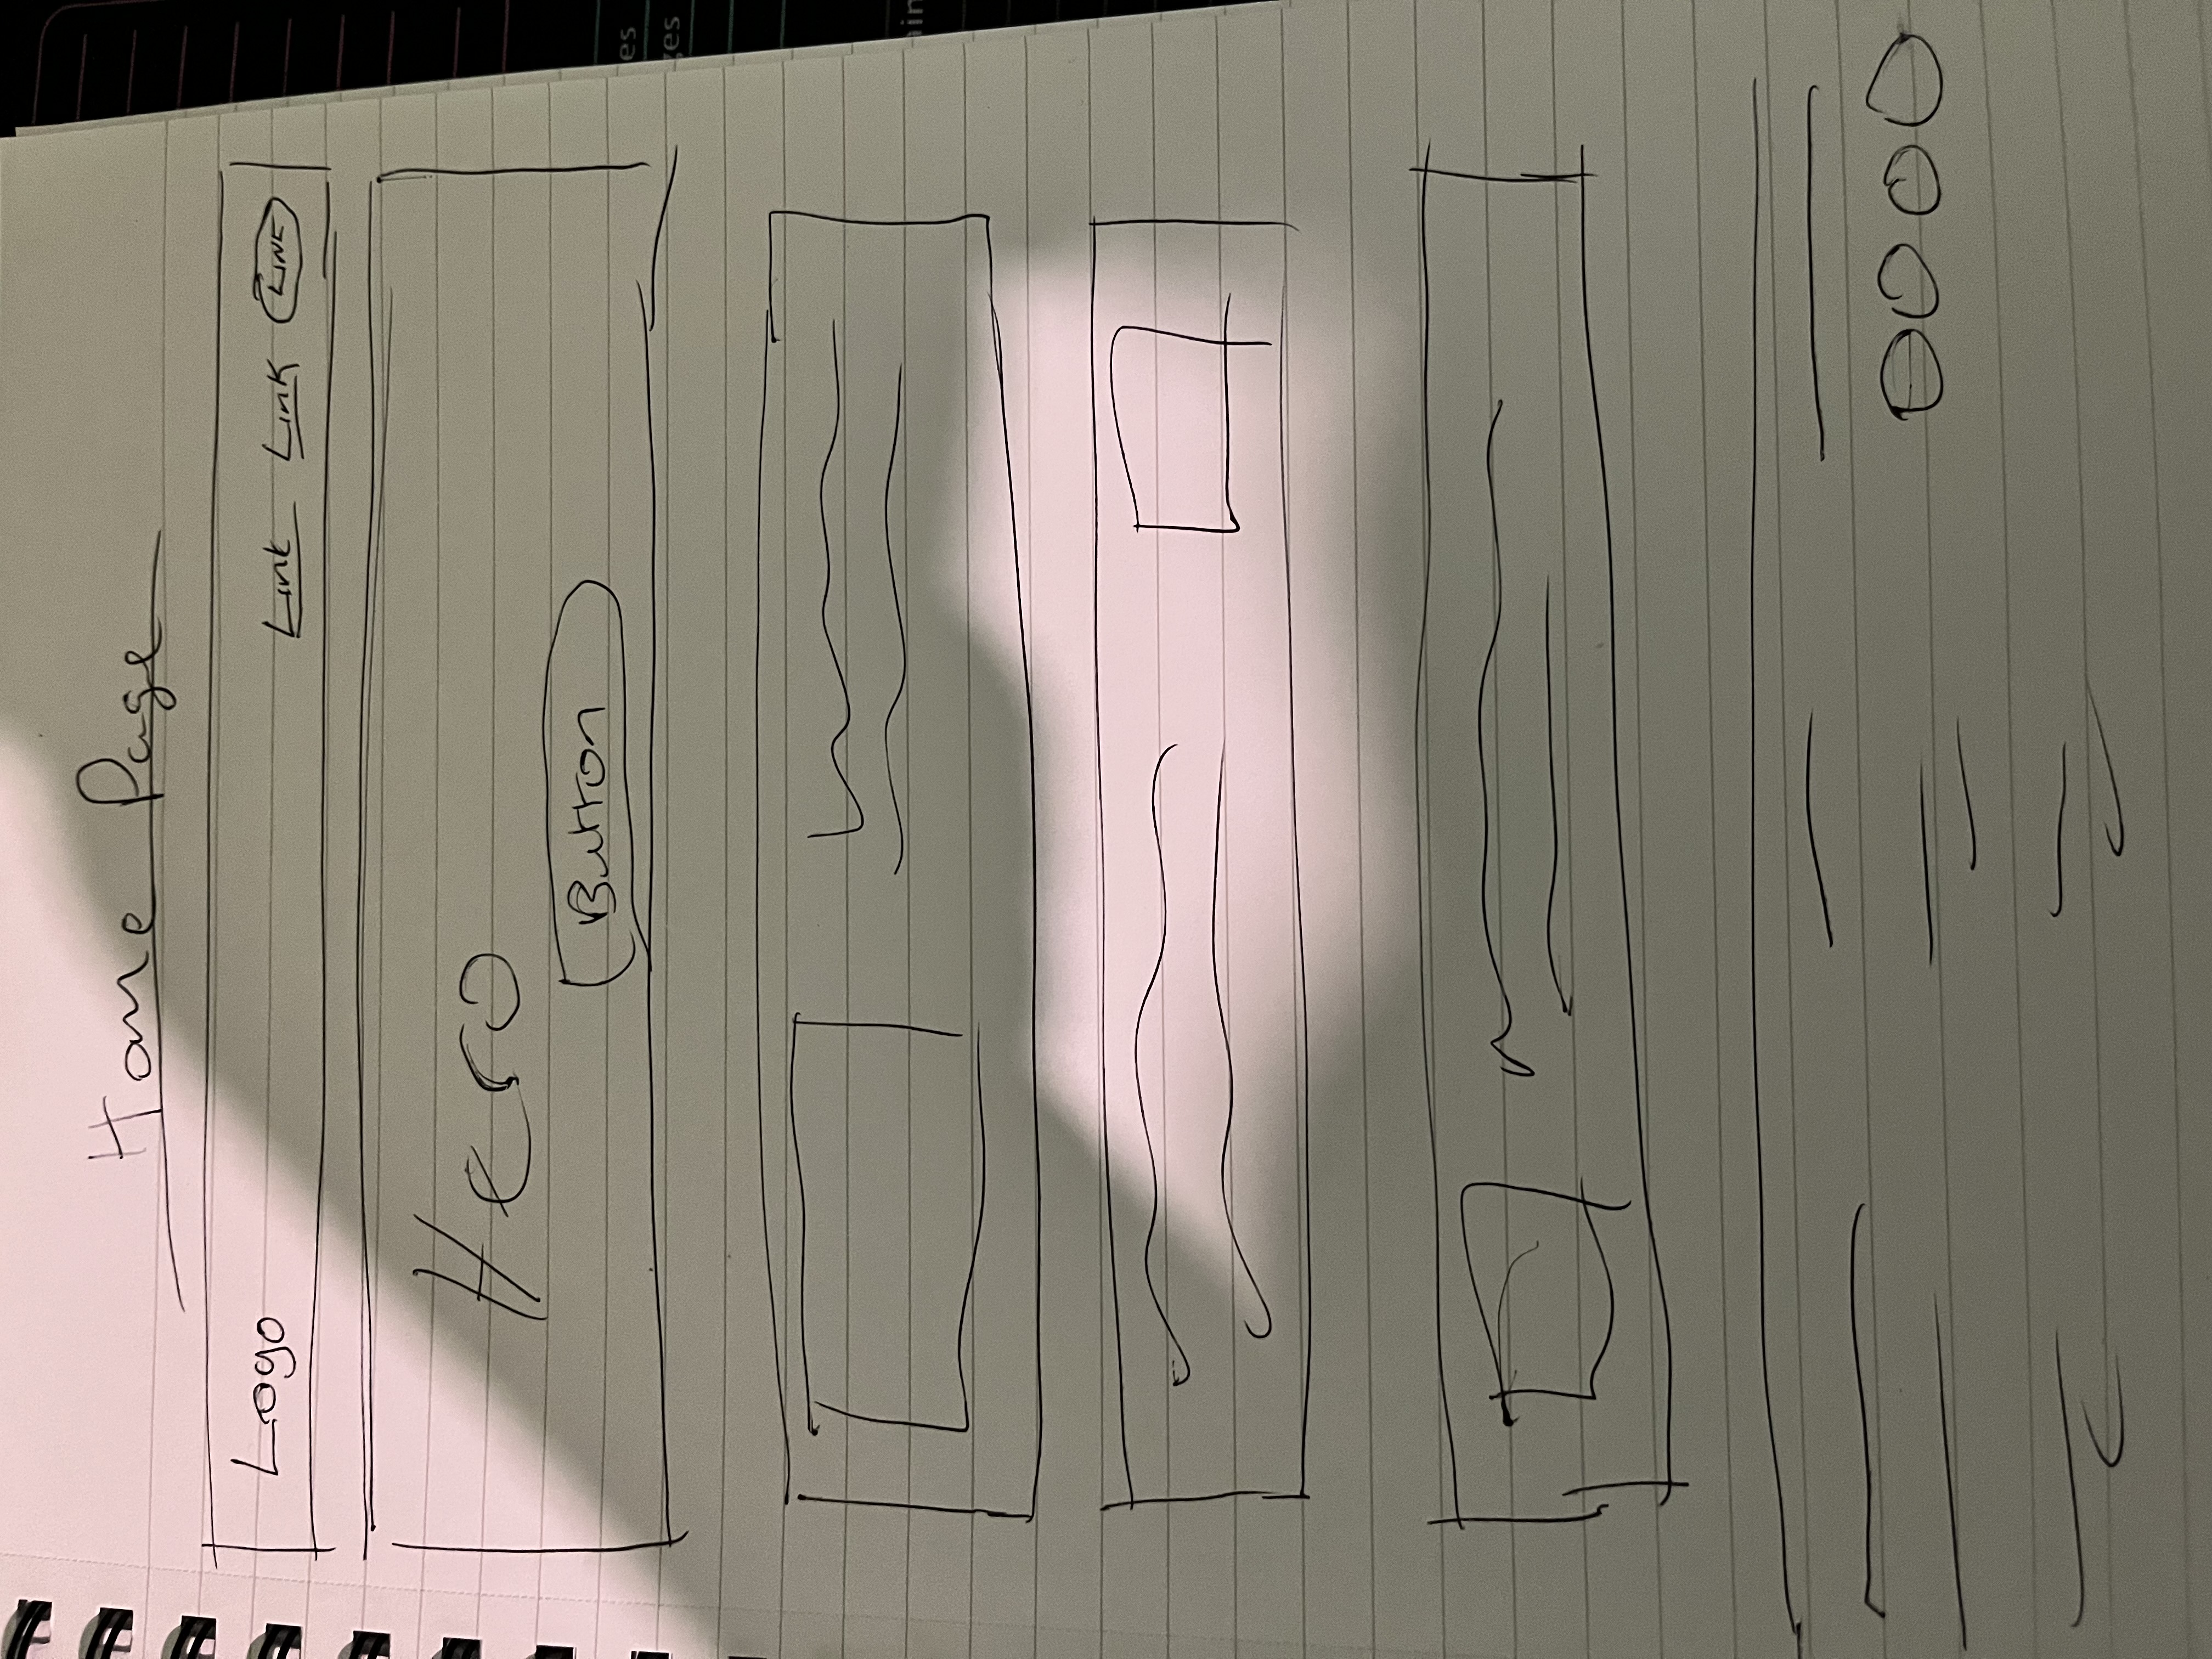 Home Page
Logo Link Link LINK
Hero
Button
es
ges